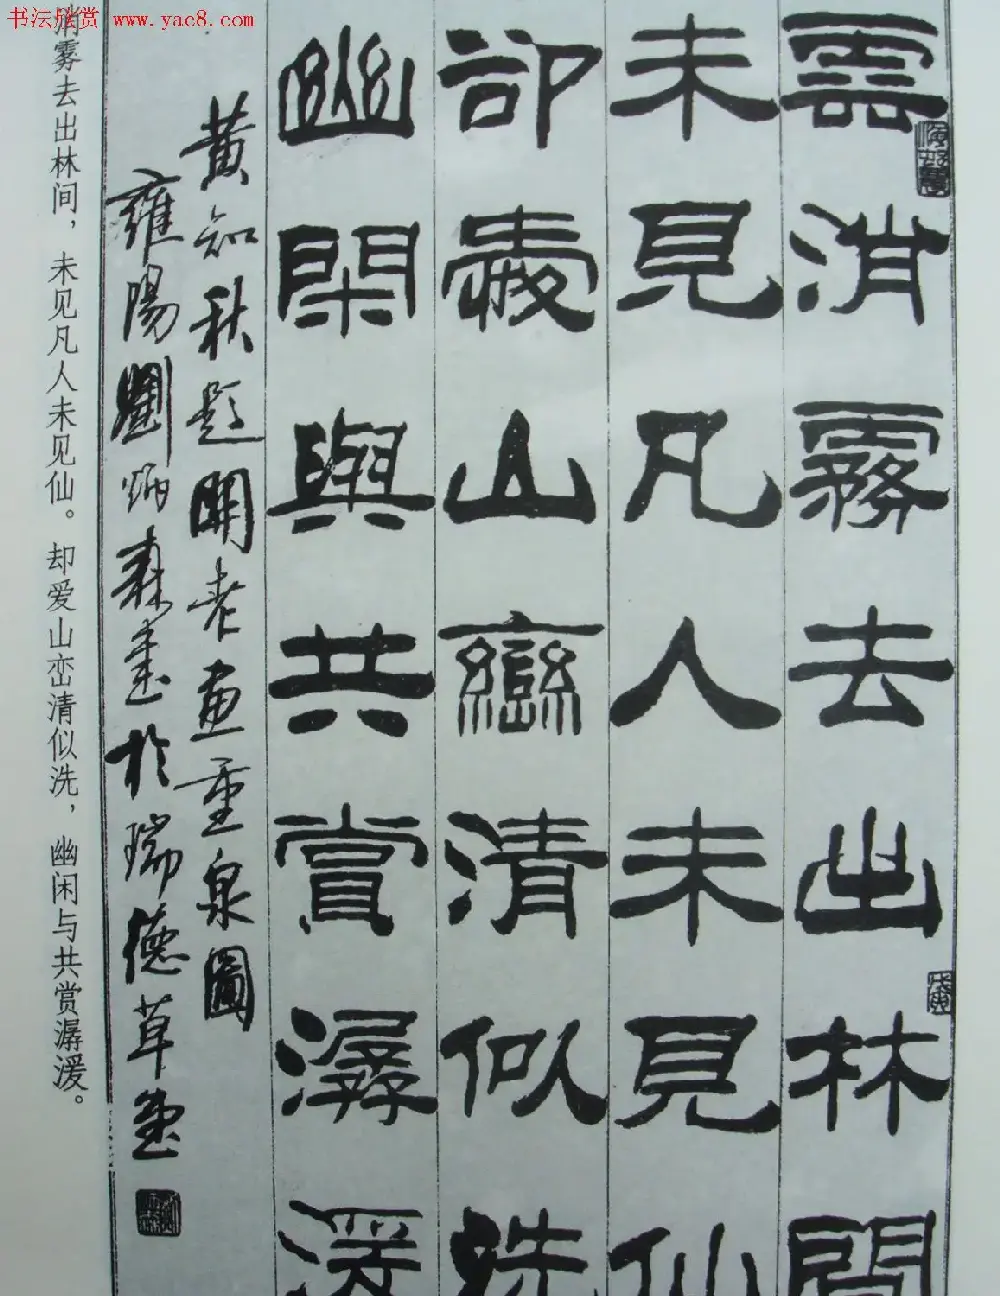 书法欣赏 www.yac8.com
雲消霧去出林間
未見凡人未見仙
却愛山巒清似洗
幽閑與共賞潺湲
黄知秋題開老画重泉圖
雍陽劉炳森書於瑞德草堂
消雾去出林间，未见凡人未见仙。却爱山峦清似洗，幽闲与共赏潺湲。